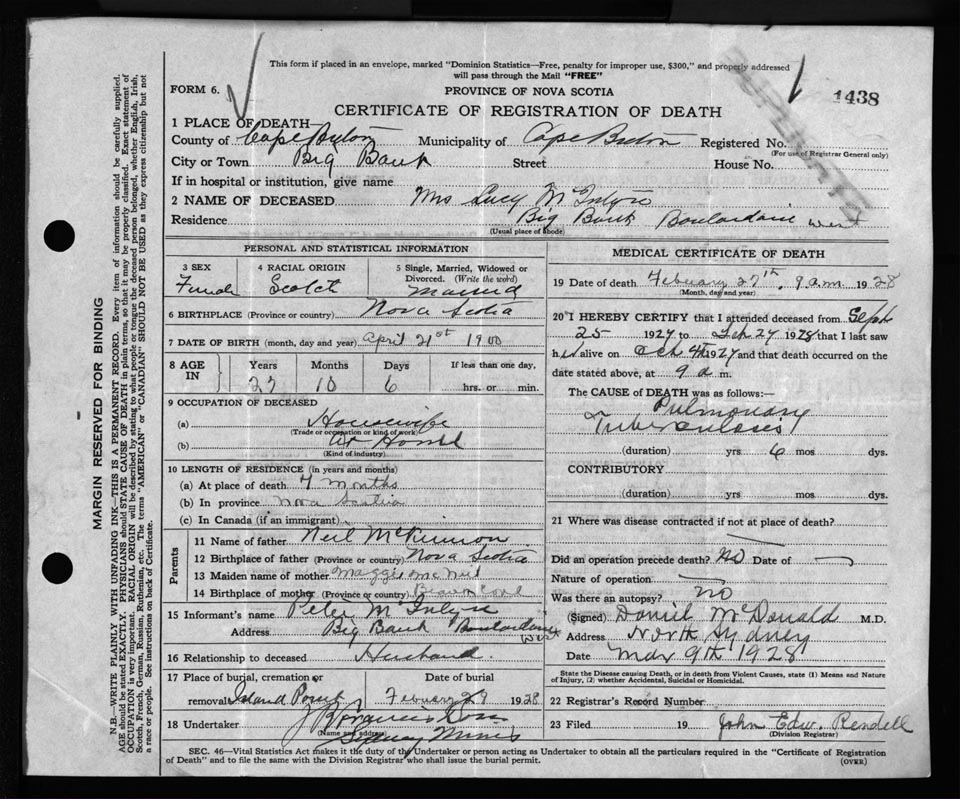 This form if placed in an envelope, marked "Dominion Statistics—Free, penalty for improper use, $300," and properly addressed
will pass through the Mail "FREE"
FORM 6.
PROVINCE OF NOVA SCOTIA
DUPLICATE
1438
CERTIFICATE OF REGISTRATION OF DEATH
1 PLACE OF DEATH—
County of Cape Breton Municipality of Cape Breton Registered No.
(For use of Registrar General only)
City or Town Big Bank Street House No.
If in hospital or institution, give name
2 NAME OF DECEASED Mrs Lucy McIntyre
Residence Big Bank Boulardarie West
(Usual place of abode)
PERSONAL AND STATISTICAL INFORMATION
3 SEX
Female
4 RACIAL ORIGIN
Scotch
5 Single, Married, Widowed or
Divorced. (Write the word)
Married
6 BIRTHPLACE (Province or country) Nova Scotia
7 DATE OF BIRTH (month, day and year) April 21st 1900
8 AGE IN
Years Months Days If less than one day,
27 10 6 hrs. or min.
9 OCCUPATION OF DECEASED
(a) Housewife
(Trade or occupation or kind of work)
(b) at Home
(Kind of industry)
10 LENGTH OF RESIDENCE (in years and months)
(a) At place of death 7 months
(b) In province Nova Scotia
(c) In Canada (if an immigrant)
Parents
11 Name of father Neil McKinnon
12 Birthplace of father (Province or country) Nova Scotia
13 Maiden name of mother Maggie McNeil
14 Birthplace of mother (Province or country) Cove
15 Informant's name Peter McIntyre
Address Big Bank Boulardarie West
16 Relationship to deceased Husband.
17 Place of burial, cremation or Date of burial
removal Island Point February 29 1928
18 Undertaker J Francis Sons
(Name and address)
Sydney Mines
MEDICAL CERTIFICATE OF DEATH
19 Date of death February 27th, 9 a.m. 1928
(Month, day and year)
20 I HEREBY CERTIFY that I attended deceased from Sept
25 1927 to Feb 27 1928 that I last saw
her alive on Oct 4th 1927 and that death occurred on the
date stated above, at 9 a m.
The CAUSE of DEATH was as follows:
Pulmonary
Tuberculosis
(duration) yrs 6 mos dys.
CONTRIBUTORY
(duration) yrs. mos dys.
21 Where was disease contracted if not at place of death?
Did an operation precede death? No Date of
Nature of operation
Was there an autopsy? no
(Signed) Daniel McDonald M.D.
Address North Sydney
Date Mar 9th 1928
State the Disease causing Death, or in death from Violent Causes, state (1) Means and Nature
of Injury, (2) whether Accidental, Suicidal or Homicidal.
22 Registrar's Record Number
23 Filed 19 John Edw. Rendell
(Division Registrar)
SEC. 46—Vital Statistics Act makes it the duty of the Undertaker or person acting as Undertaker to obtain all the particulars required in the "Certificate of Registration
of Death" and to file the same with the Division Registrar who shall issue the burial permit.
(OVER)
MARGIN RESERVED FOR BINDING
N.B.—WRITE PLAINLY WITH UNFADING INK—THIS IS A PERMANENT RECORD. Every item of information should be carefully supplied.
AGE should be stated EXACTLY. PHYSICIANS should STATE CAUSE OF DEATH in plain terms, so that it may be properly classified. Exact statement of
OCCUPATION is very important. RACIAL ORIGIN will be described by stating to what people or tongue the deceased person belonged, whether English, Irish,
Scotch, French, German, Russian, Ruthenian, etc. The terms "AMERICAN" or "CANADIAN" SHOULD NOT BE USED as they express citizenship but not
a race or people. See instructions on back of Certificate.